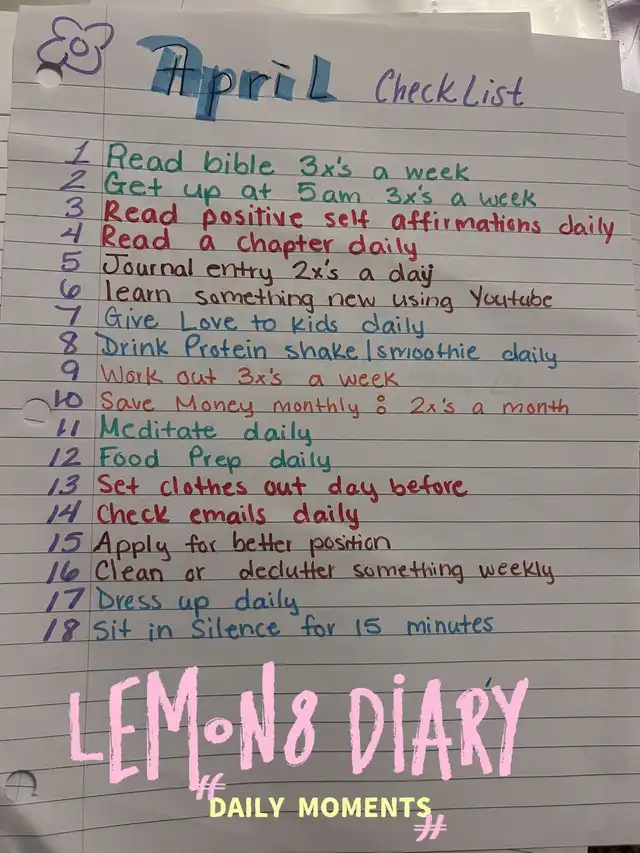 April CheckList
1 Read bible 3x's a week
2 Get up at 5am 3x's a week
3 Read positive self affirmations daily
4 Read a chapter daily
5 Journal entry 2x's a day
6 learn something new using Youtube
7 Give Love to kids daily
8 Drink Protein shake/smoothie daily
9 Work out 3x's a week
10 Save Money monthly : 2x's a month
11 Meditate daily
12 Food Prep daily
13 Set clothes out day before
14 Check emails daily
15 Apply for better position
16 Clean or declutter something weekly
17 Dress up daily
18 Sit in Silence for 15 minutes
LEMON8 DIARY
DAILY MOMENTS